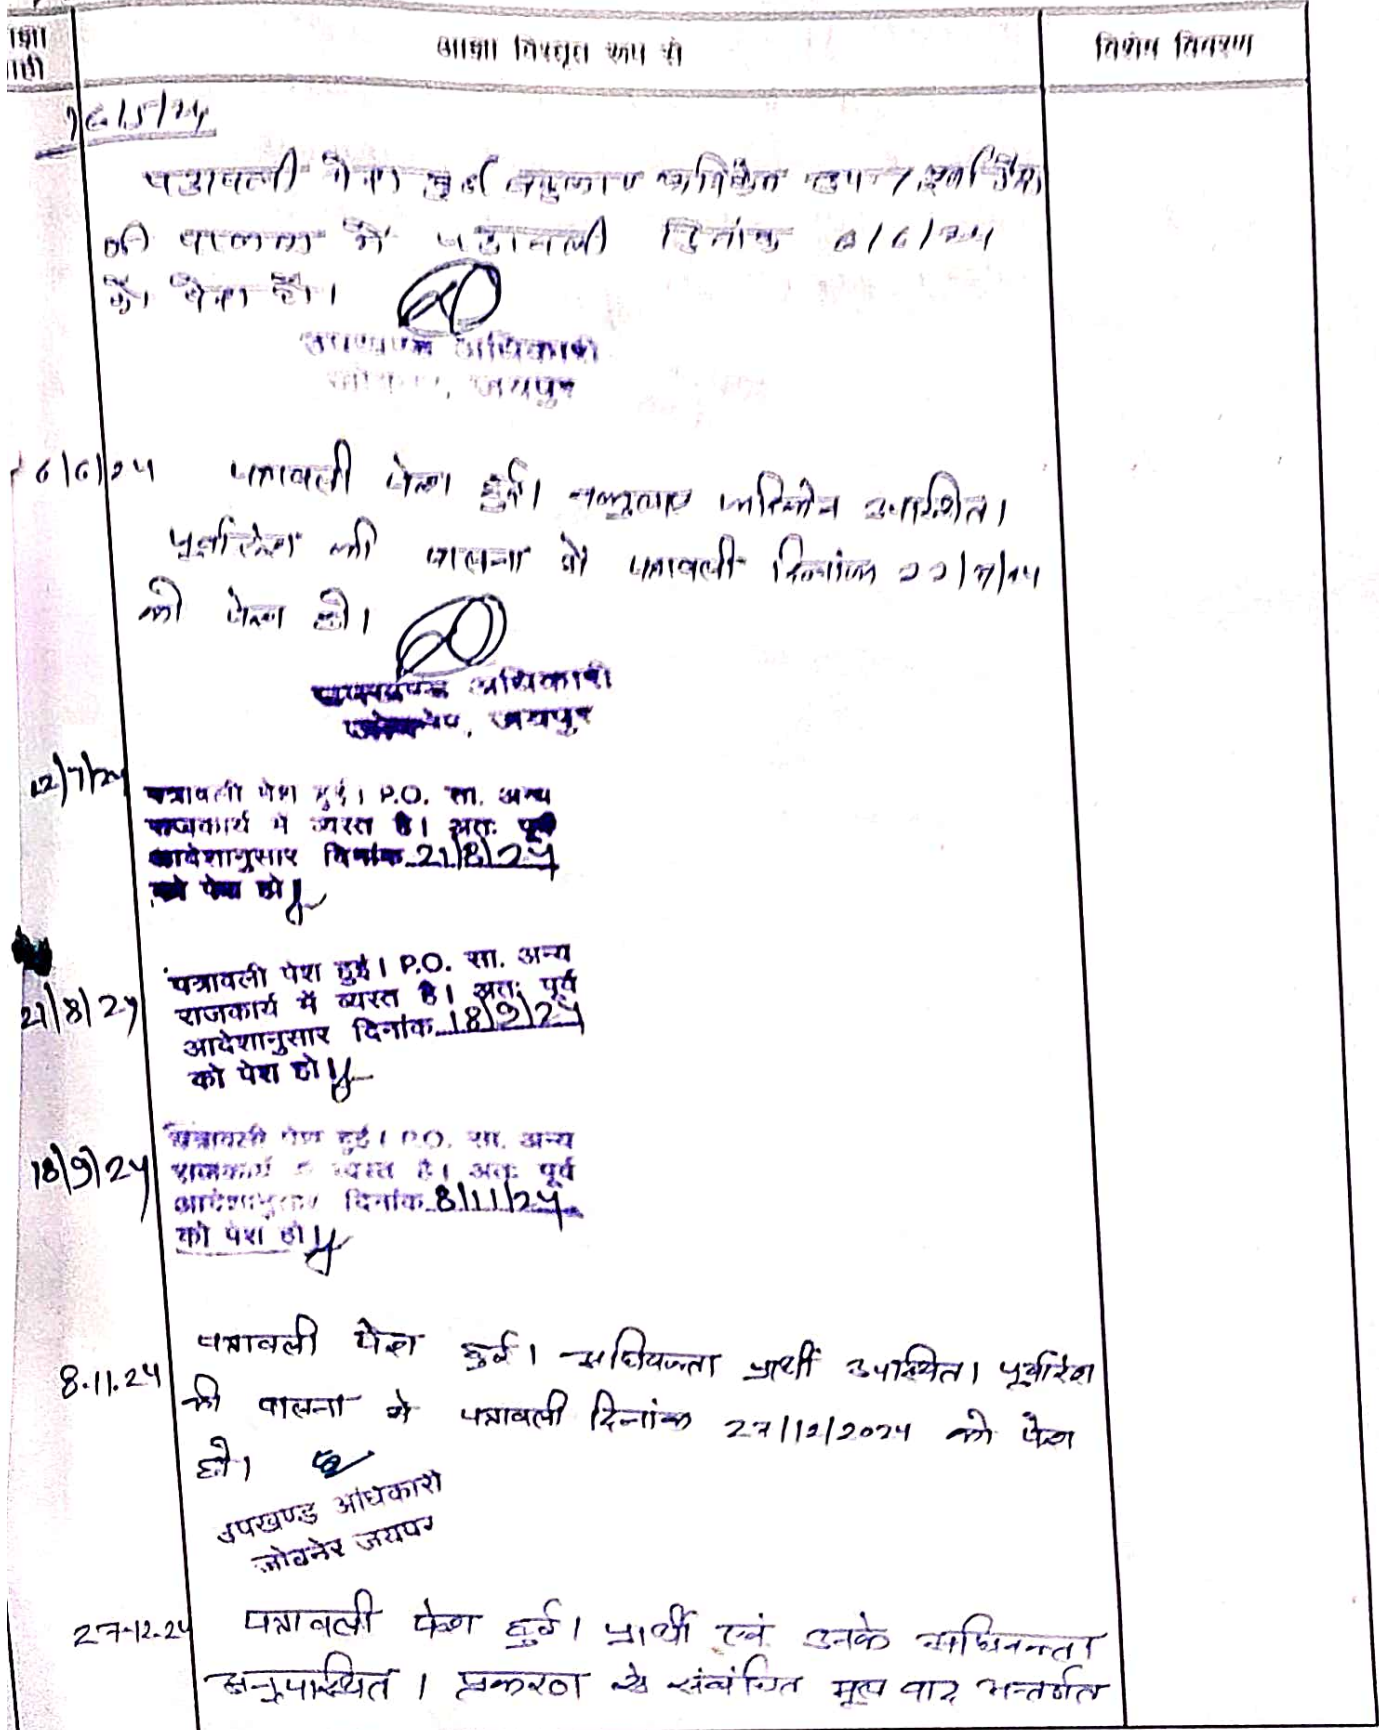 आज्ञा विस्तृत रूप से
विशेष विवरण
16/5/24
पत्रावली पेश हुई
की पालना में पत्रावली दिनांक 6/6/24
को पेश हो।
उपखण्ड अधिकारी
जोबनेर, जयपुर
6/6/24 पत्रावली पेश हुई। उपस्थित।
पूर्वादेश की पालना में पत्रावली दिनांक
को पेश हो।
उपखण्ड अधिकारी
जोबनेर, जयपुर
12/7/24
पत्रावली पेश हुई। P.O. सा. अन्य
राजकार्य में व्यस्त है। अतः पूर्व
आदेशानुसार दिनांक 21/8/24
को पेश हो।
21/8/24
पत्रावली पेश हुई। P.O. सा. अन्य
राजकार्य में व्यस्त है। अतः पूर्व
आदेशानुसार दिनांक 18/9/24
को पेश हो।
18/9/24
पत्रावली पेश हुई। P.O. सा. अन्य
राजकार्य में व्यस्त है। अतः पूर्व
आदेशानुसार दिनांक 8/11/24
को पेश हो।
8.11.24
पत्रावली पेश हुई। अधिवक्ता प्रार्थी उपस्थित। पूर्वादेश
की पालना में पत्रावली दिनांक 27/12/2024 को पेश
हो।
उपखण्ड अधिकारी
जोबनेर जयपुर
27-12-24 पत्रावली पेश हुई। प्रार्थी एवं उनके अधिवक्ता
अनुपस्थित। प्रकरण से संबंधित मूल वाद अन्तर्गत